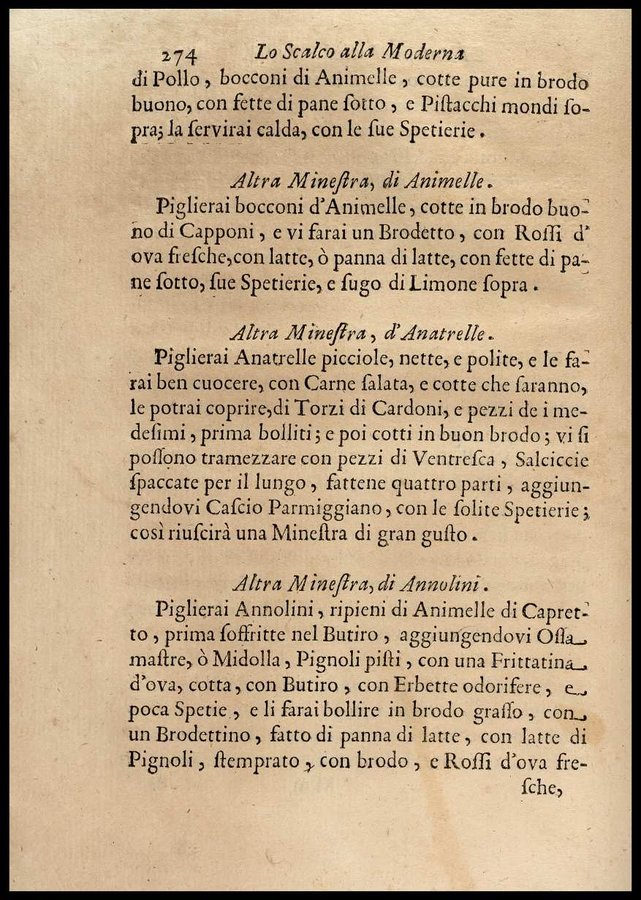 274 Lo Scalco alla Moderna
di Pollo, bocconi di Animelle, cotte pure in brodo
buono, con fette di pane ſotto, e Piſtacchi mondi ſo-
pra; la ſervirai calda, con le ſue Spetierie.
Altra Mineſtra, di Animelle.
Piglierai bocconi d'Animelle, cotte in brodo buo-
no di Capponi, e vi farai un Brodetto, con Roſſi d'
ova freſche, con latte, ò panna di latte, con fette di pa-
ne ſotto, ſue Spetierie, e ſugo di Limone ſopra.
Altra Mineſtra, d'Anatrelle.
Piglierai Anatrelle picciole, nette, e polite, e le fa-
rai ben cuocere, con Carne ſalata, e cotte che ſaranno,
le potrai coprire, di Torzi di Cardoni, e pezzi de i me-
deſimi, prima bolliti; e poi cotti in buon brodo; vi ſi
poſſono tramezzare con pezzi di Ventreſca, Salciccie
ſpaccate per il lungo, fattene quattro parti, aggiun-
gendovi Caſcio Parmiggiano, con le ſolite Spetierie;
così riuſcirà una Mineſtra di gran guſto.
Altra Mineſtra, di Annolini.
Piglierai Annolini, ripieni di Animelle di Capret-
to, prima ſoffritte nel Butiro, aggiungendovi Oſſa
maſtre, ò Midolla, Pignoli piſti, con una Frittatina
d'ova, cotta, con Butiro, con Erbette odorifere, e
poca Spetie, e li farai bollire in brodo graſſo, con
un Brodettino, fatto di panna di latte, con latte di
Pignoli, ſtemprato, con brodo, e Roſſi d'ova fre-
ſche,